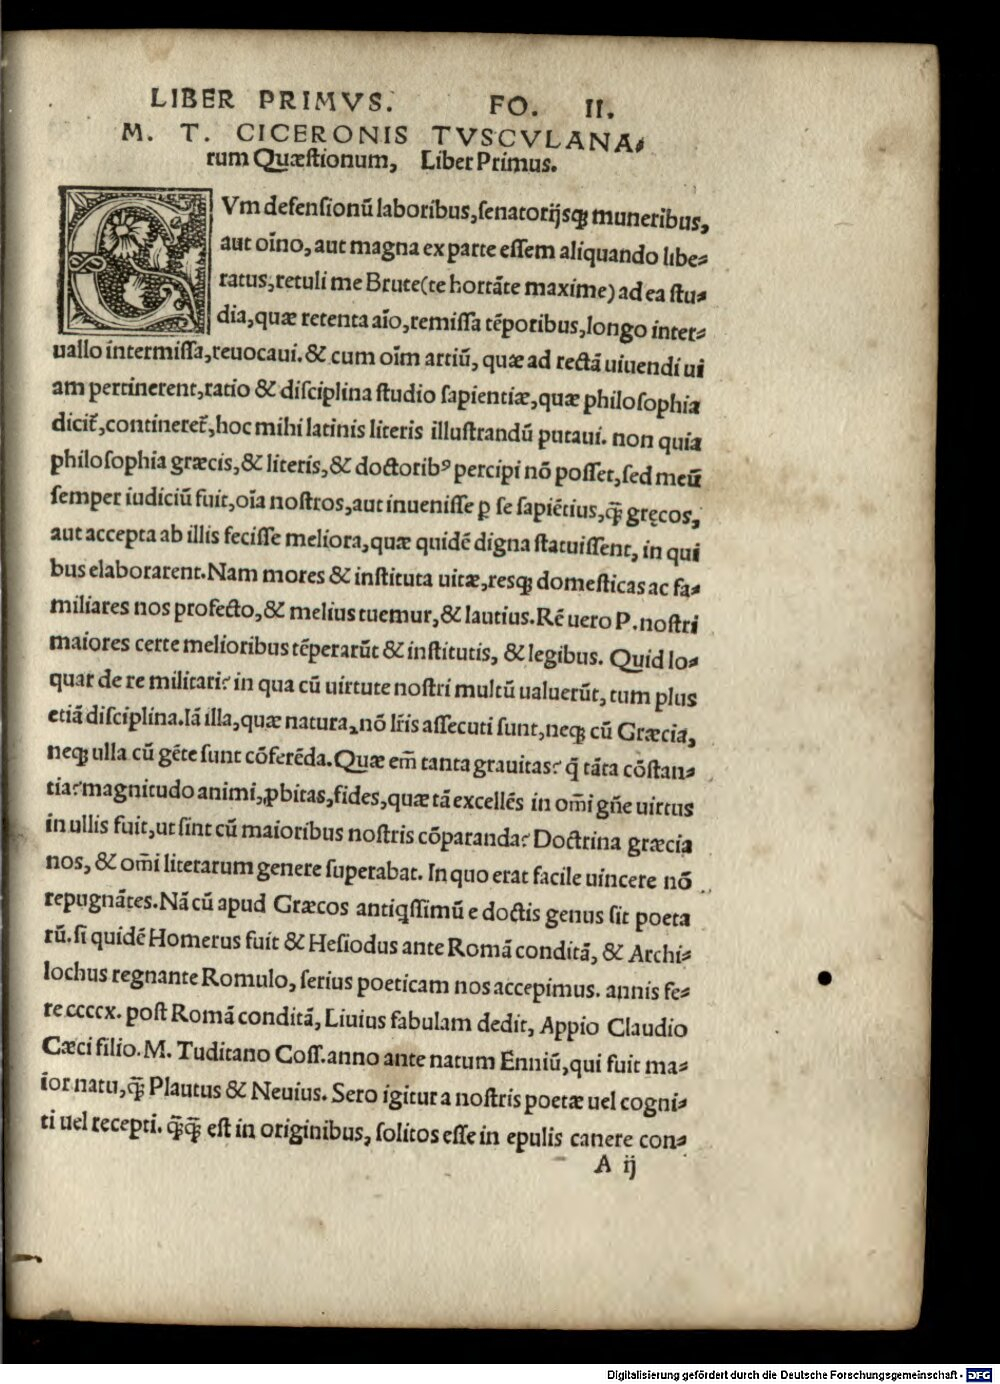 LIBER PRIMVS. FO. II.
M. T. CICERONIS TVSCVLANA⸗
rum Quæstionum, Liber Primus.
CVm defensionũ laboribus, senatorijsq; muneribus,
aut oĩno, aut magna ex parte essem aliquando libe⸗
ratus, retuli me Brute (te hortãte maxime) ad ea stu⸗
dia, quæ retenta aĩo, remissa tẽporibus, longo inter⸗
uallo intermissa, reuocaui. & cum oĩm artiũ, quæ ad rectã uiuendi ui
am pertinerent, ratio & disciplina studio sapientiæ, quæ philosophia
dicit̃, contineret̃, hoc mihi latinis literis illustrandũ putaui. non quia
philosophia græcis, & literis, & doctorib⁹ percipi nõ posset, sed meũ
semper iudiciũ fuit, oĩa nostros, aut inuenisse ꝑ se sapiẽtius, q̃ᷓ gręcos,
aut accepta ab illis fecisse meliora, quæ quidẽ digna statuissent, in qui
bus elaborarent. Nam mores & instituta uitæ, resq; domesticas ac fa⸗
miliares nos profecto, & melius tuemur, & lautius. Rẽ uero P. nostri
maiores certe melioribus tẽperarũt & institutis, & legibus. Quid lo⸗
quar de re militari? in qua cũ uirtute nostri multũ ualuerũt, tum plus
etiã disciplina. Iã illa, quæ natura, nõ lr̃is assecuti sunt, neq; cũ Græcia,
neq; ulla cũ gẽte sunt cõferẽda. Quæ em̃ tanta grauitas? q̃ tãta cõstan⸗
tia? magnitudo animi, ꝓbitas, fides, quæ tã excellẽs in om̃i gñe uirtus
in ullis fuit, ut sint cũ maioribus nostris cõparanda? Doctrina græcia
nos, & om̃i literarum genere superabat. In quo erat facile uincere nõ
repugnãtes. Nã cũ apud Græcos antiqssimũ e doctis genus sit poeta
rũ. si quidẽ Homerus fuit & Hesiodus ante Romã conditã, & Archi⸗
lochus regnante Romulo, serius poeticam nos accepimus. annis fe⸗
re ccccx. post Romã conditã, Liuius fabulam dedit, Appio Claudio
Cæci filio. M. Tuditano Coss. anno ante natum Enniũ, qui fuit ma⸗
ior natu, q̃ᷓ Plautus & Neuius. Sero igitur a nostris poetæ uel cogni⸗
ti uel recepti. q̃ᷓq̃ᷓ est in originibus, solitos esse in epulis canere con⸗
A ij
Digitalisierung gefördert durch die Deutsche Forschungsgemeinschaft - DFG